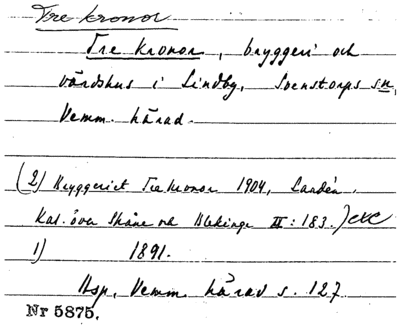 Tre kronor
Tre kronor, bryggeri och
värdshus i Lindby, Svenstorps sn,
Vemm. härad.
(2) Bryggeriet Tre kronor 1904, Landén.
Kat. över Skåne och Blekinge II: 183.)
1) 1891.
Hsp. Vemm. härad s. 127
Nr 5875.